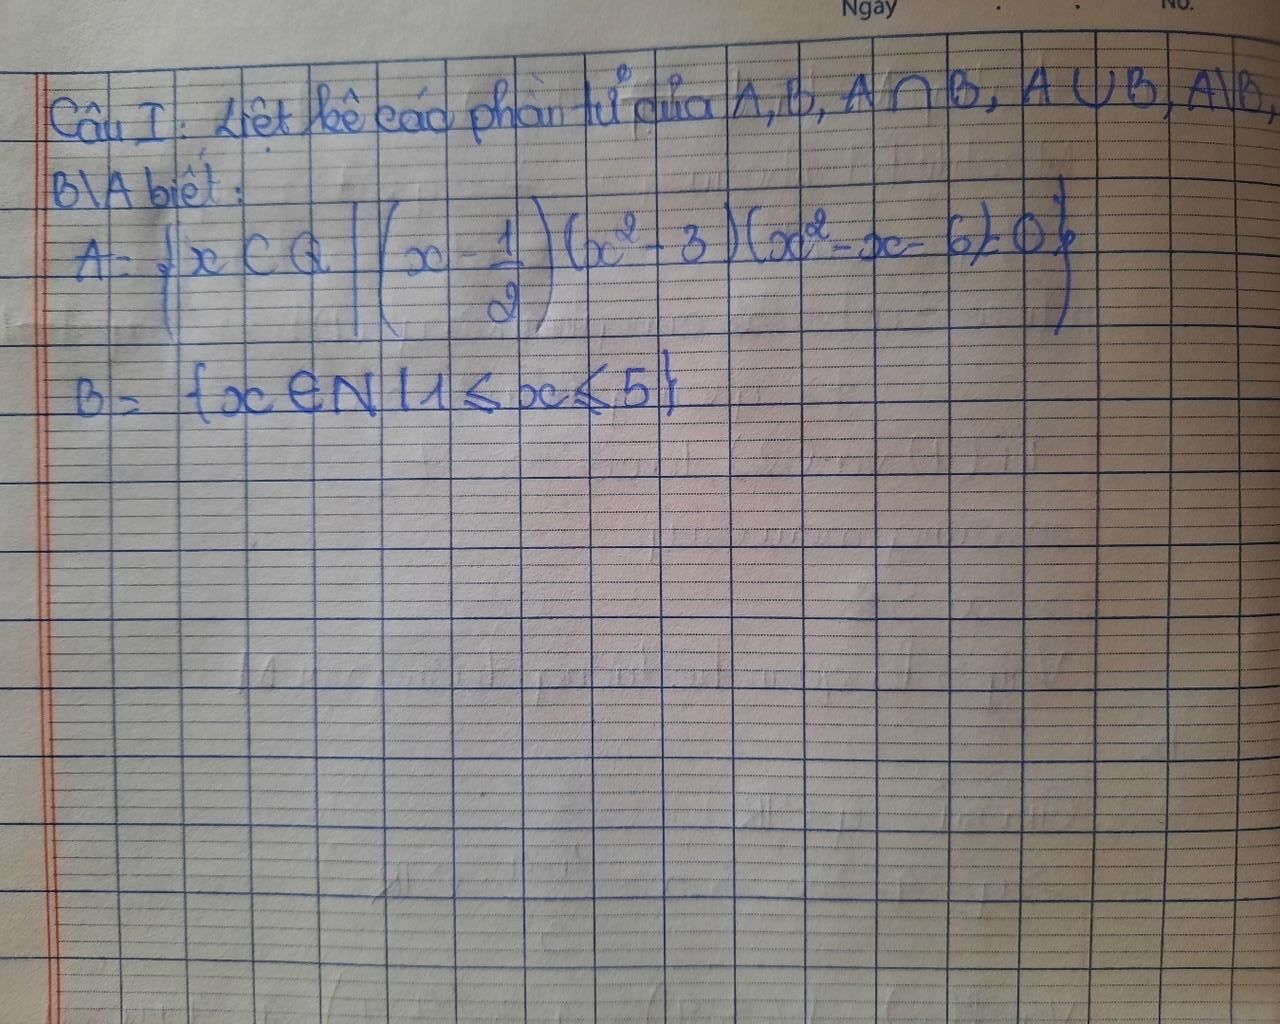 Ngày No.
Câu I: Liệt kê các phần tử của A, B, A∩B, A∪B, A\B,
B\A biết:
A = {x ⊂ Q | (x - 1/2)(x² - 3)(x² - x - 6) = 0}
B = {x ∈ N | 1 ≤ x ≤ 5}